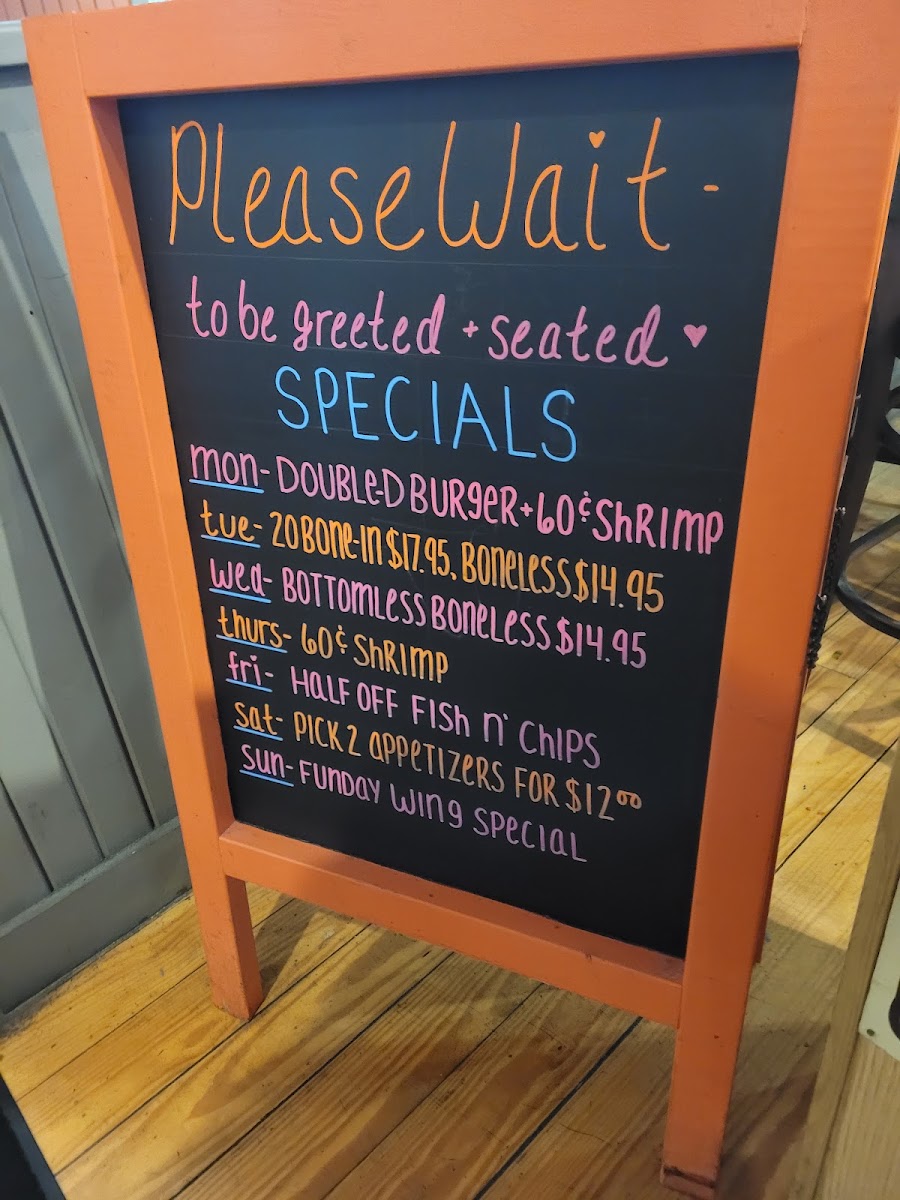 Please Wait -
to be greeted + seated ♥
SPECIALS
mon- DOUBLE-D BURGER + 60¢ SHRIMP
tue- 20 BONE-IN $17.95, BONELESS $14.95
wed- BOTTOMLESS BONELESS $14.95
thurs- 60¢ SHRIMP
fri- HALF OFF FISH N' CHIPS
sat- PICK 2 APPETIZERS FOR $12.00
sun- FUNDAY WING SPECIAL